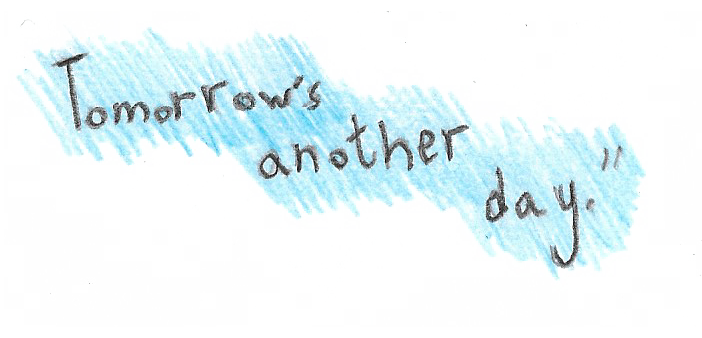 Tomorrow's
another
day."